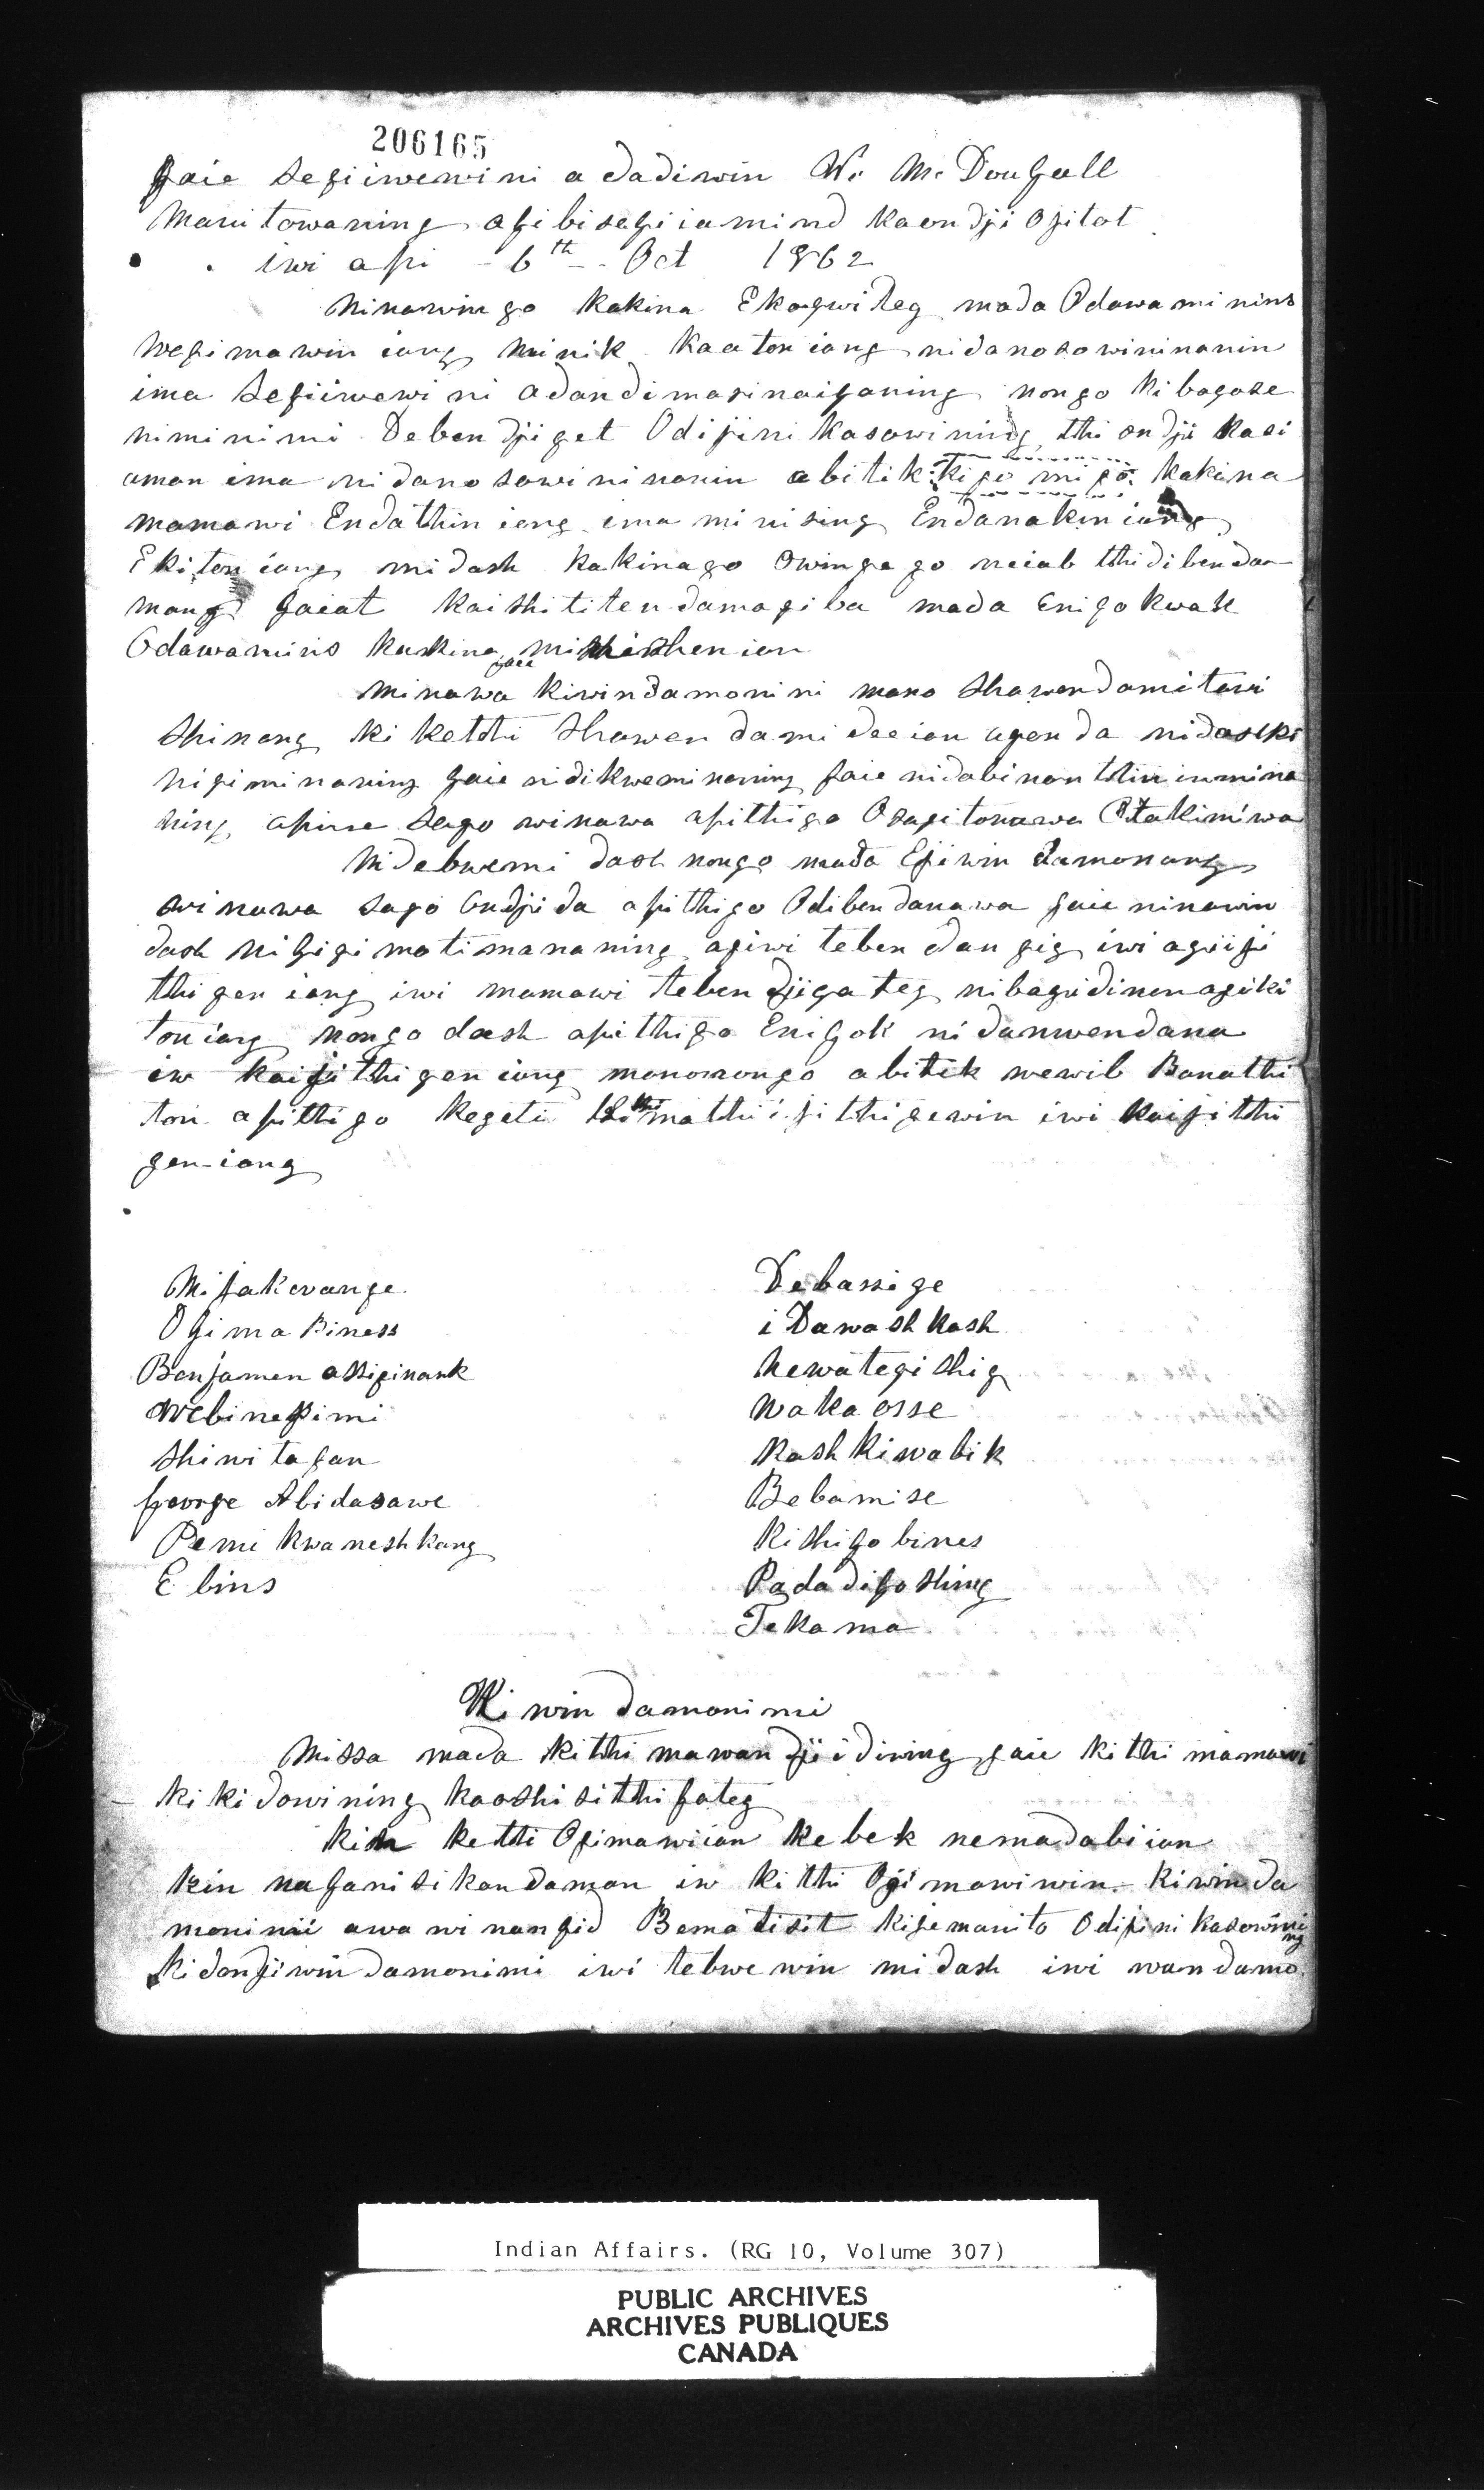 206165
gaie Segiiwewini adadiwin W. Mc Dougall
Manitowaning agibisagiiamind kaondji ogitot
iwi api - 6th - Oct 1862
Ninawin go kakina Ekogwiteg mada Odawa minins
Wegimawin iang minik kaaton iang nidanosowininanin
ima Segiiwewini adandimasinaiganing nongo ki bagose
niminimi Debendjiget Odijini kasowining tthi ondji kasi
aman ima nidanosowininanin abitik kigo migo kakina
mamawi Endatthin iang ima minising Endanakin iang
Ekiton iang midash kakinago owingego neiab tthi dibendan
mang gaiat kaishititendamagiba mada Enigokwak
Odawaminis kakina gaie mishenien
Minawa kiwindamonini mano Shawendamitawi
Shinang ki ketthi Shawendamideeian agenda nidaseko
nigiminaning gaie nidikweminaning gaie nidabinontthiiumina
ning, apine Sago winawa apitthigo Osagitonawa Otakimiwa
Nidebwemi dash nongo mada Ejiwindamonang
winawa sago Ondjida apitthigo Odibendanawa gaie ninawin
dash nigigimatimananing agiwi tebendangig iwi agiiji
tthigen iang iwi mamawi tebendjigateg nibagidinenagiki
toniang nongo dash apitthigo Enigok nidanwendana
iw kaijitthigen iang manonongo abitik wewib Banatthi
ton apitthigo Kegeti ki matthi ijitthigewin iwi kaijitthi
gen-iang
Mijakwange
Ogima Biness
Benjamen assiginank
Webinegimi
Shiwitagan
George Abidasawe
Pemikwaneshkang
E bins
Debassige
i Dawashkash
Kewategishig
Wakaosse
Kashkiwabik
Bebamise
Kishigobines
Padadigoshing
Tekama
Kiwindamonimi
Missa mada kitthi mawandjiidiwing gaie kitthi mamawi
kikidowining kaoshisitthigateg
Kin ketthi Ogimawiian Kebek nemadabiian
kin naganisikandaman iw kitthi Ogimawiwin. Kiwinda
monimi awawinangid Bematisit kijemanito Odijinikasowining
kidonjiwindamonimi iwi tebwewin midash iwi wandamo
Indian Affairs. (RG 10, Volume 307)
PUBLIC ARCHIVES
ARCHIVES PUBLIQUES
CANADA